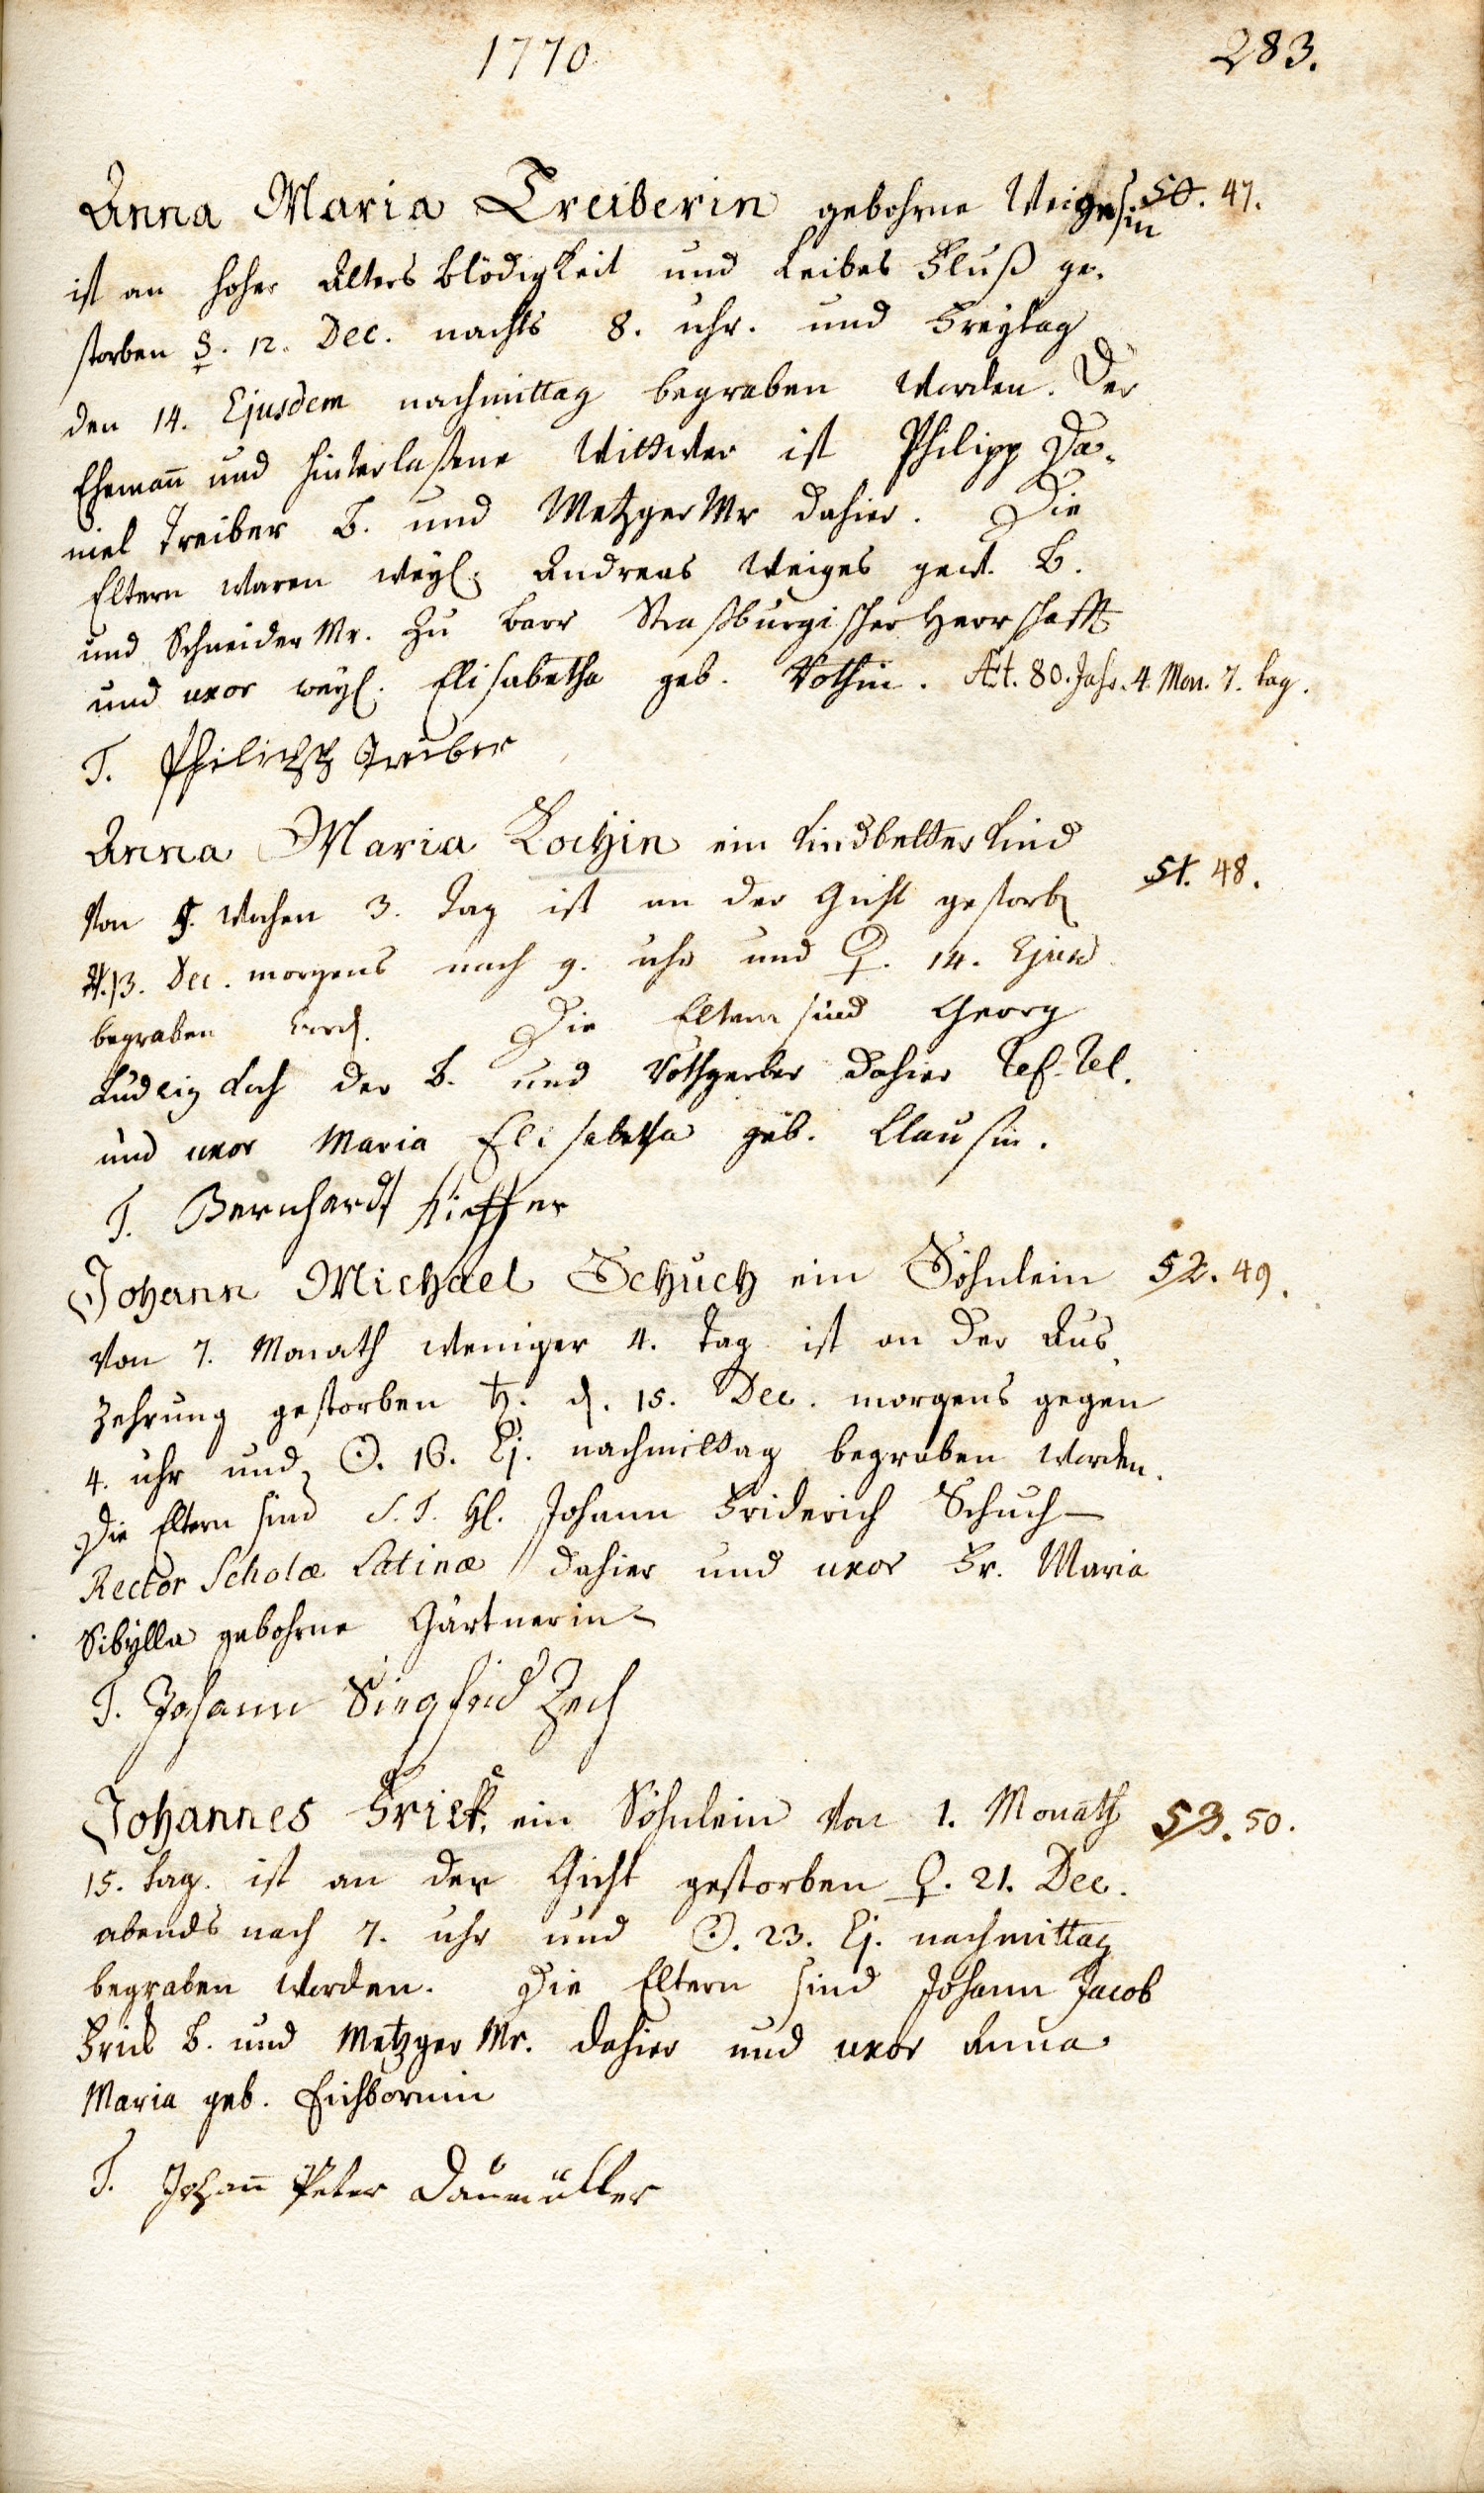 1770
283.
Anna Maria Treiberin gebohrne Weigesin 50. 47.
ist an hoher Alters Blödigkeit und Leibes Fluß ge-
storben ☿. 12. Dec. nachts 8. uhr. und Freytag
den 14. Ejusdem nachmittag begraben worden. Der
Ehemañ und hinterlaßene Wittwer ist Philipp Da-
niel Treiber B. und Metzger Mr dahier. Die
Eltern waren weyl. Andreas Weiges gew. B.
und Schneider Mr. zu Barr Straßburgischer Herrschafft
und uxor weyl. Elisabetha geb. Rothin. Æt. 80. Jahr. 4. Mon. 7. tag.
T. Philipp Treiber
Anna Maria Kochin ein Kindbetter Kind
51. 48.
Von 5. Wochen 3. Tag ist an der Gicht gestorb
♃. 13. Dec. morgens nach 9. uhr und ♀. 14. Ejusd
begraben word. Die Eltern sind Georg
Ludwig Koch der B. und Rothgerber dahier Ref. Rel.
und uxor Maria Elisabetha geb. Clausin.
T. Bernhardt Kieffer
Johann Michael Schuch ein Söhnlein 52. 49.
Von 7. Monath weniger 4. Tag ist an der Aus-
zehrung gestorben ♄. d. 15. Dec. morgens gegen
4. uhr und ☉. 16. Ej. nachmittag begraben worden.
Die Eltern sind S. T. H. Johann Friderich Schuch
Rector Scholæ Latinæ dahier und uxor Fr. Maria
Sibylla gebohrne Gärtnerin
T. Johann Siegfrid Zech
Johannes Frick, ein Söhnlein Von 1. Monath 53. 50.
15. tag. ist an der Gicht gestorben ♀. 21. Dec.
abends nach 7. uhr und ☉. 23. Ej. nachmittag
begraben worden. Die Eltern sind Johann Jacob
Frick B. und Metzger Mr. dahier und uxor Anna
Maria geb. Eichbornin
T. Johañ Peter Daumüller